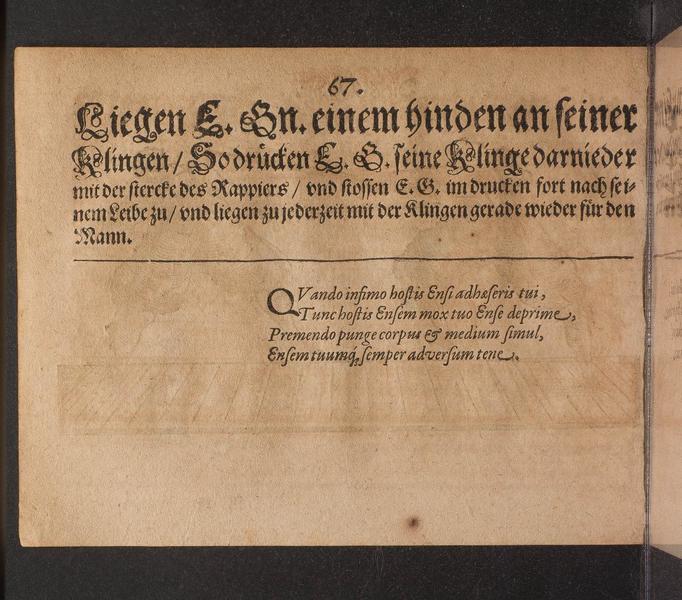 67.
Liegen E. Gn. einem hinden an seiner
Klingen / So drücken E. G. seine Klinge darnieder
mit der stercke des Rappiers / vnd stossen E. G. im drucken fort nach sei-
nem Leibe zu / vnd liegen zu jederzeit mit der Klingen gerade wieder für den
Mann.
QVando infimo hostis Ensi adhæseris tui,
Tunc hostis Ensem mox tuo Ense deprime,
Premendo punge corpus & medium simul,
Ensem tuumq́; semper adversum tene.